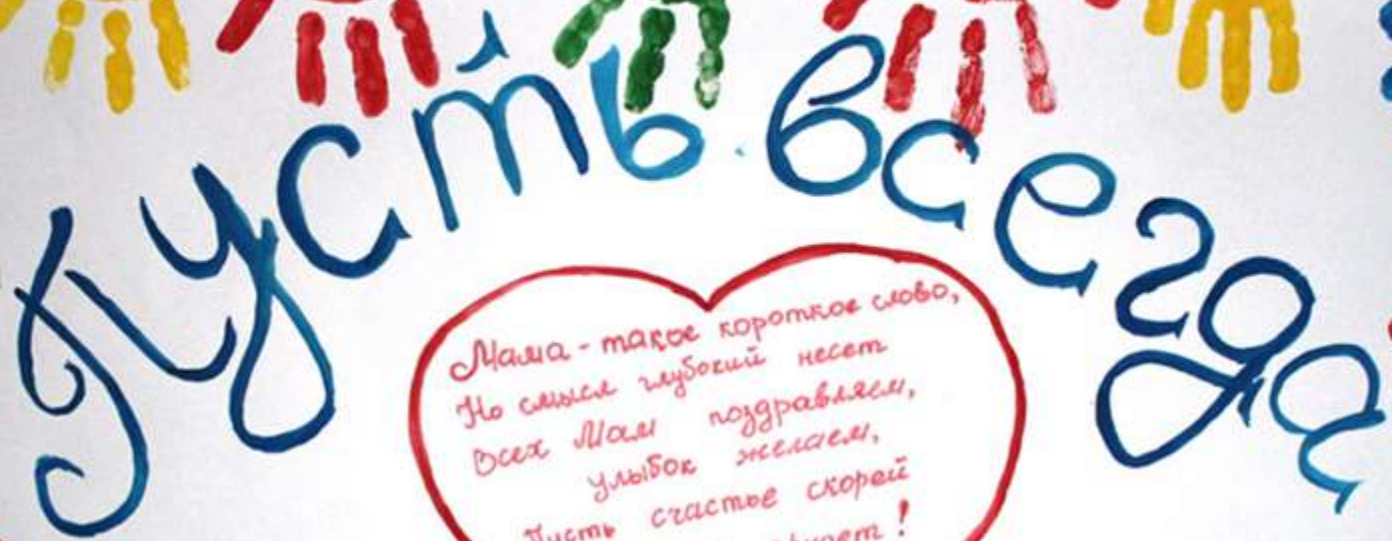 Пусть всегда
Мама - такое короткое слово,
Но смысл глубокий несет
Всех Мам поздравляем,
улыбок желаем,
Пусть счастье скорей
!